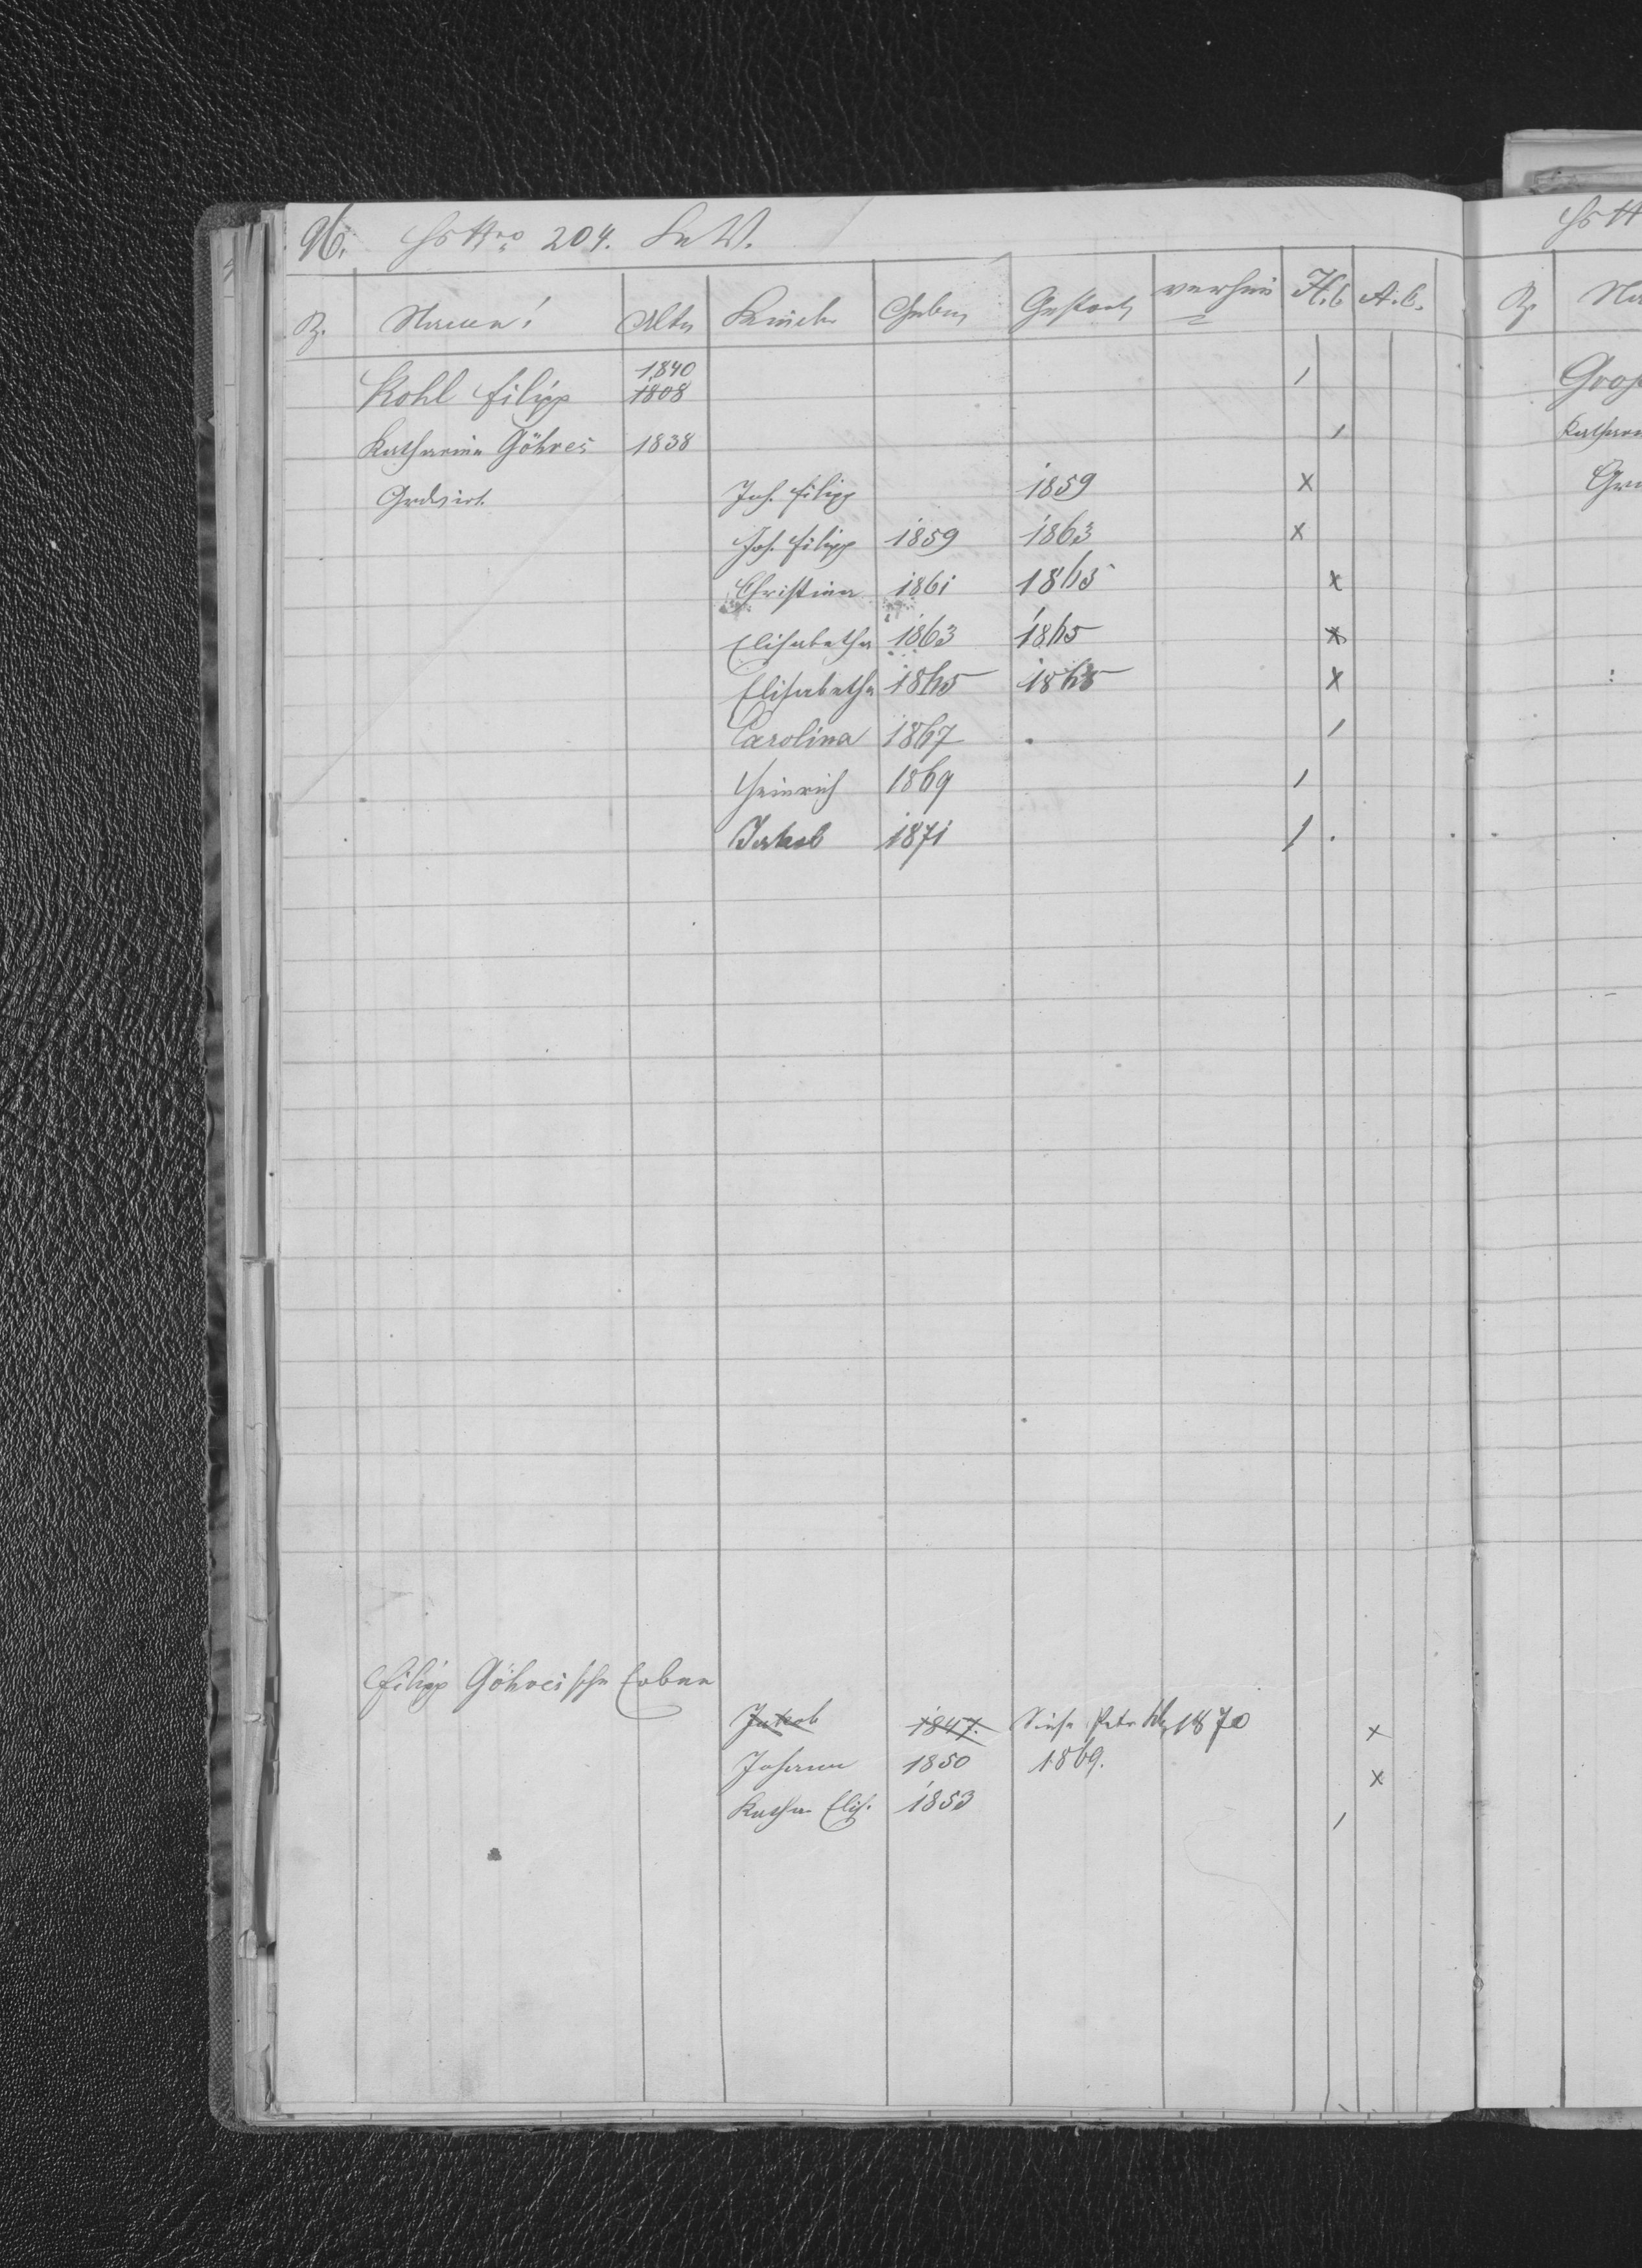 96. Hs Nro 204.
Z. Namen! Alter Kinder Gebor Gestorb verheir H.b A.b.
1840
Kohl Filipp 1808 /
Katharina Göhres 1838 /
Joh. Filipp 1859 x
Joh. Filipp 1859 1863 x
Christina 1861 1865 x
Elisabetha 1863 1865 x
Elisabetha 1865 1865 x
Carolina 1867 /
Heinrich 1869 /
Jakob 1871 /
Filipp Göhreische Erben
Jakob 1847. Siehe 1870 x
Johann 1850 1869. x
Katha Elis. 1853 /
Hs N
Z. Na
Grop
Kathari
Gru